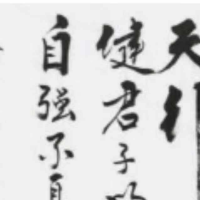 天行
健君子
自强不